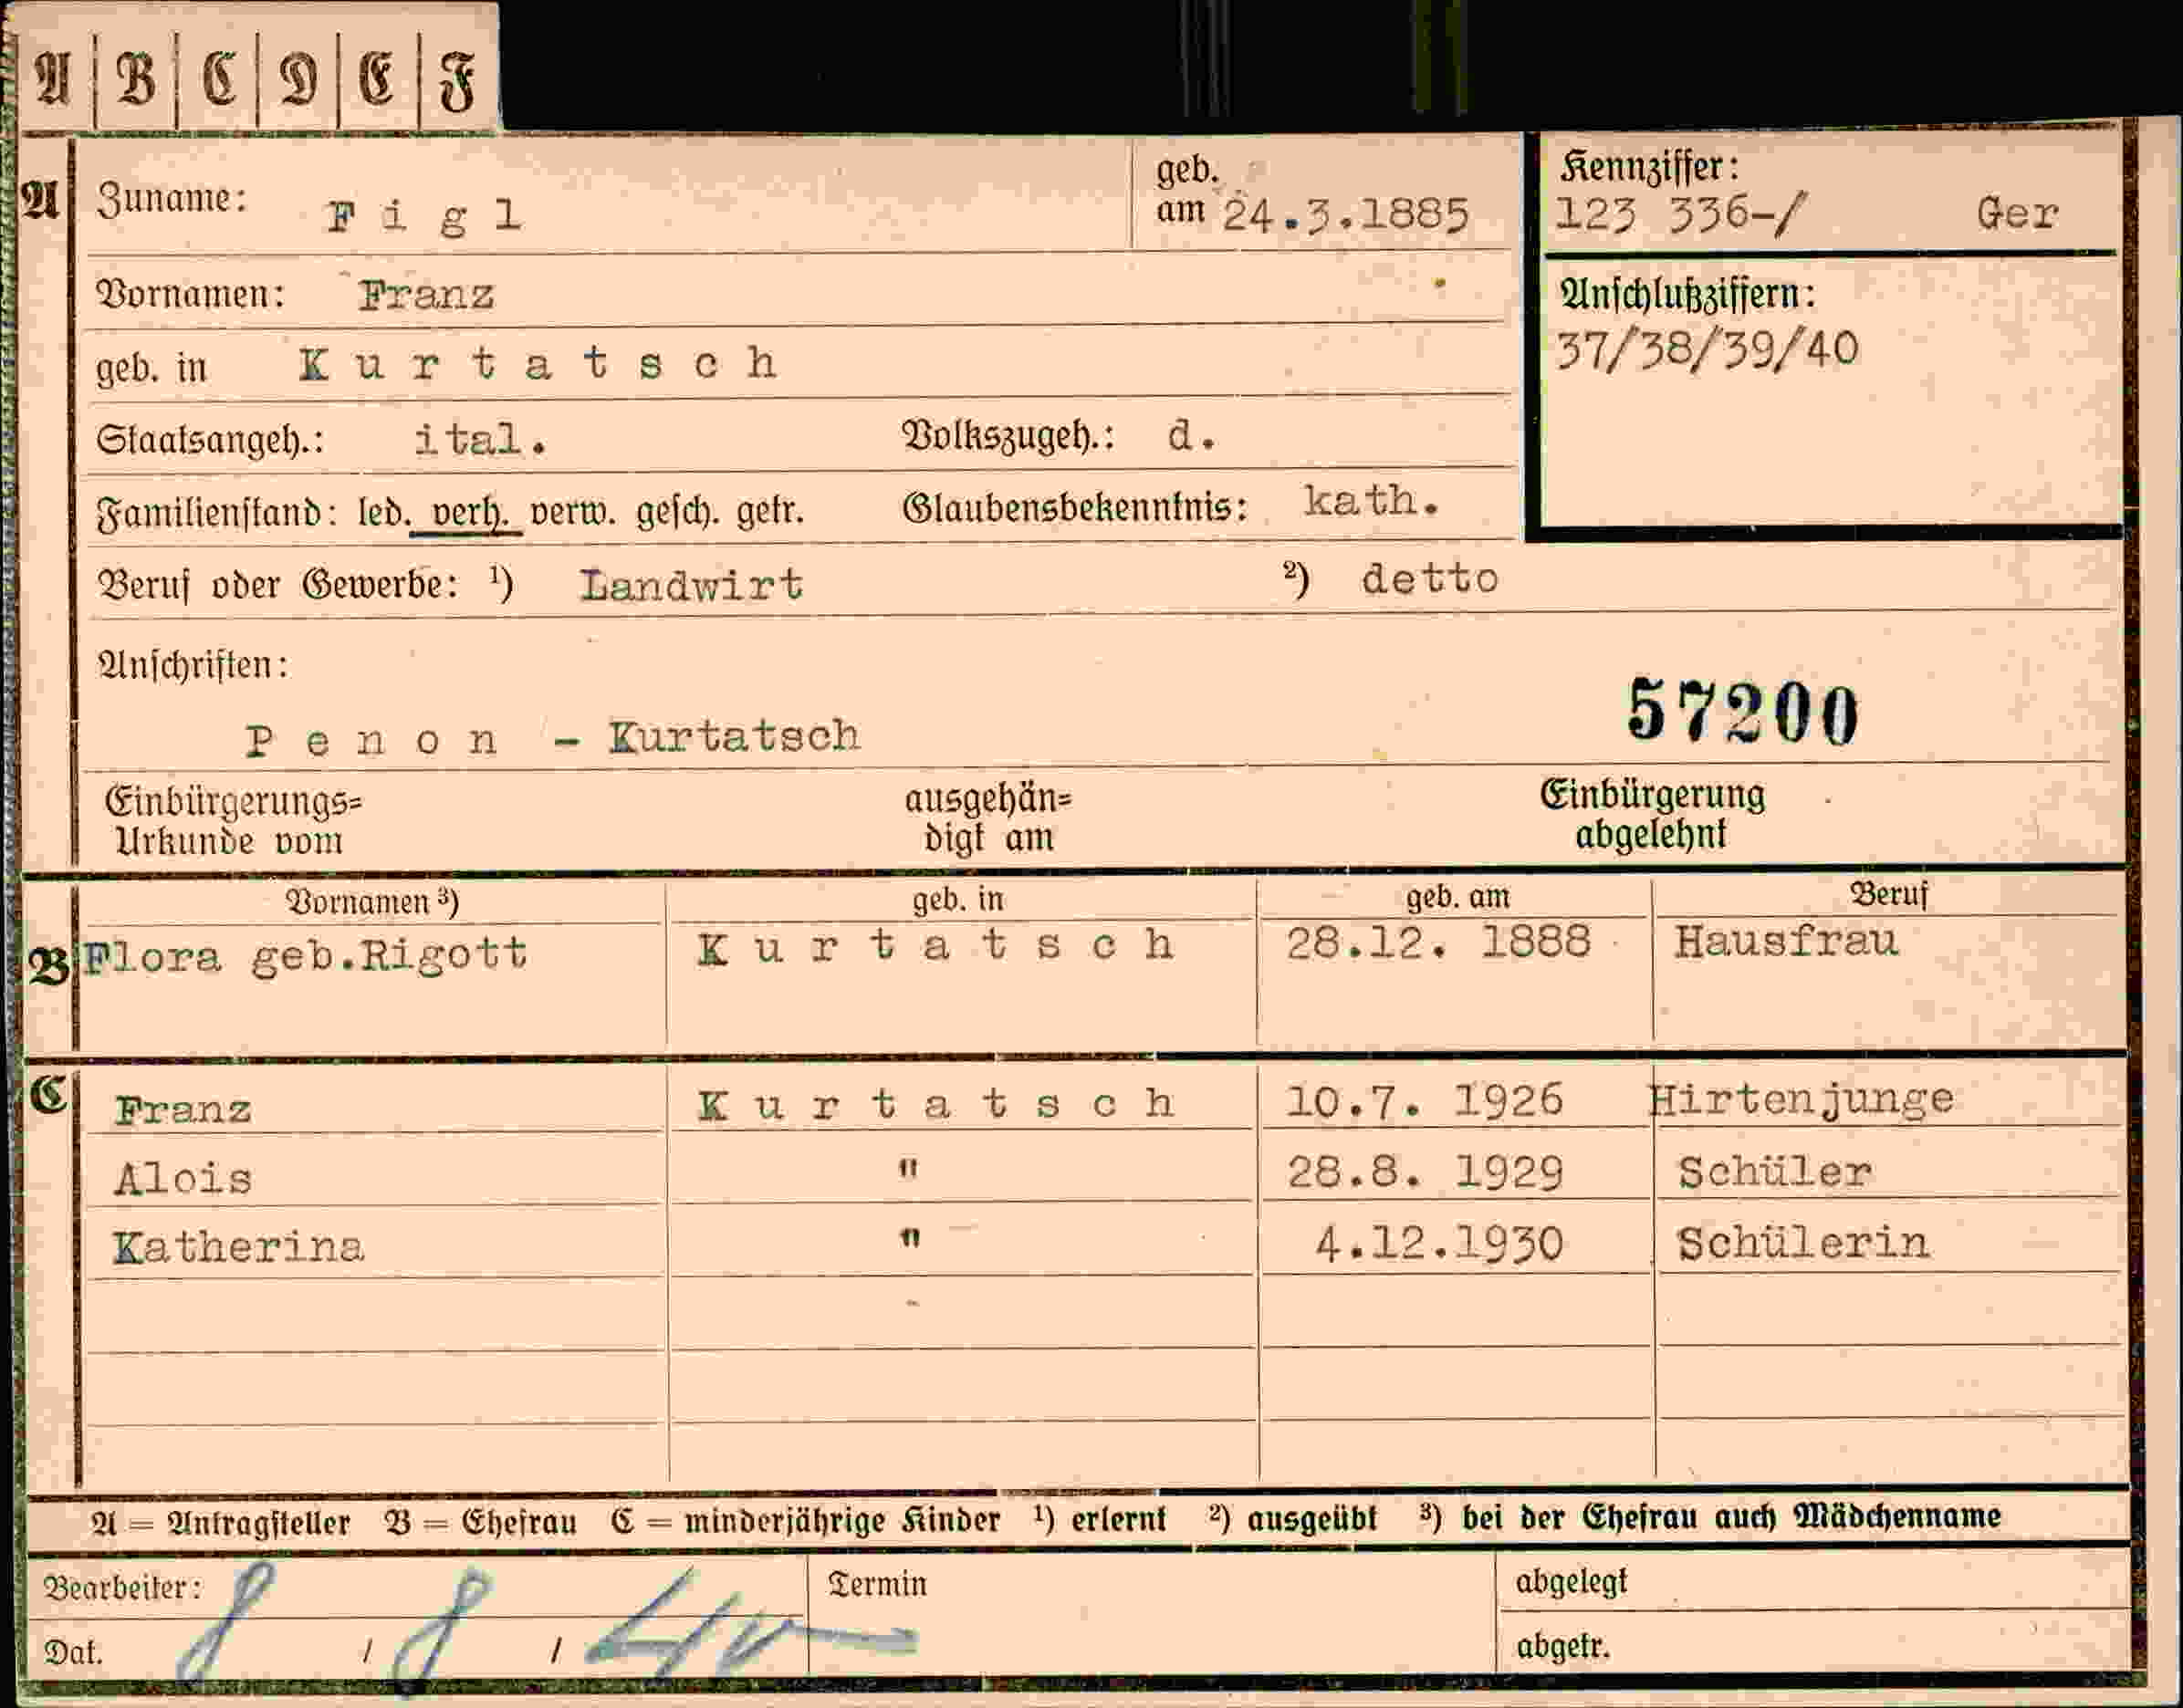 A B C D E F
A Zuname: Figl geb. am 24.3.1885 Kennziffer: 123 336-/ Ger
Vornamen: Franz Anschlußziffern:
geb. in Kurtatsch 37/38/39/40
Staatsangeh.: ital. Volkszugeh.: d.
Familienstand: led. verh. verw. gesch. getr. Glaubensbekenntnis: kath.
Beruf oder Gewerbe: ¹) Landwirt ²) detto
Anschriften:
Penon - Kurtatsch 57200
Einbürgerungs= ausgehän= Einbürgerung
Urkunde vom digt am abgelehnt
Vornamen ³) geb. in geb. am Beruf
B Flora geb.Rigott Kurtatsch 28.12. 1888 Hausfrau
C Franz Kurtatsch 10.7. 1926 Hirtenjunge
Alois " 28.8. 1929 Schüler
Katherina " 4.12.1930 Schülerin
A = Antragsteller B = Ehefrau C = minderjährige Kinder ¹) erlernt ²) ausgeübt ³) bei der Ehefrau auch Mädchenname
Bearbeiter: Termin abgelegt
Dat. 8 / 8 / 40 abgetr.